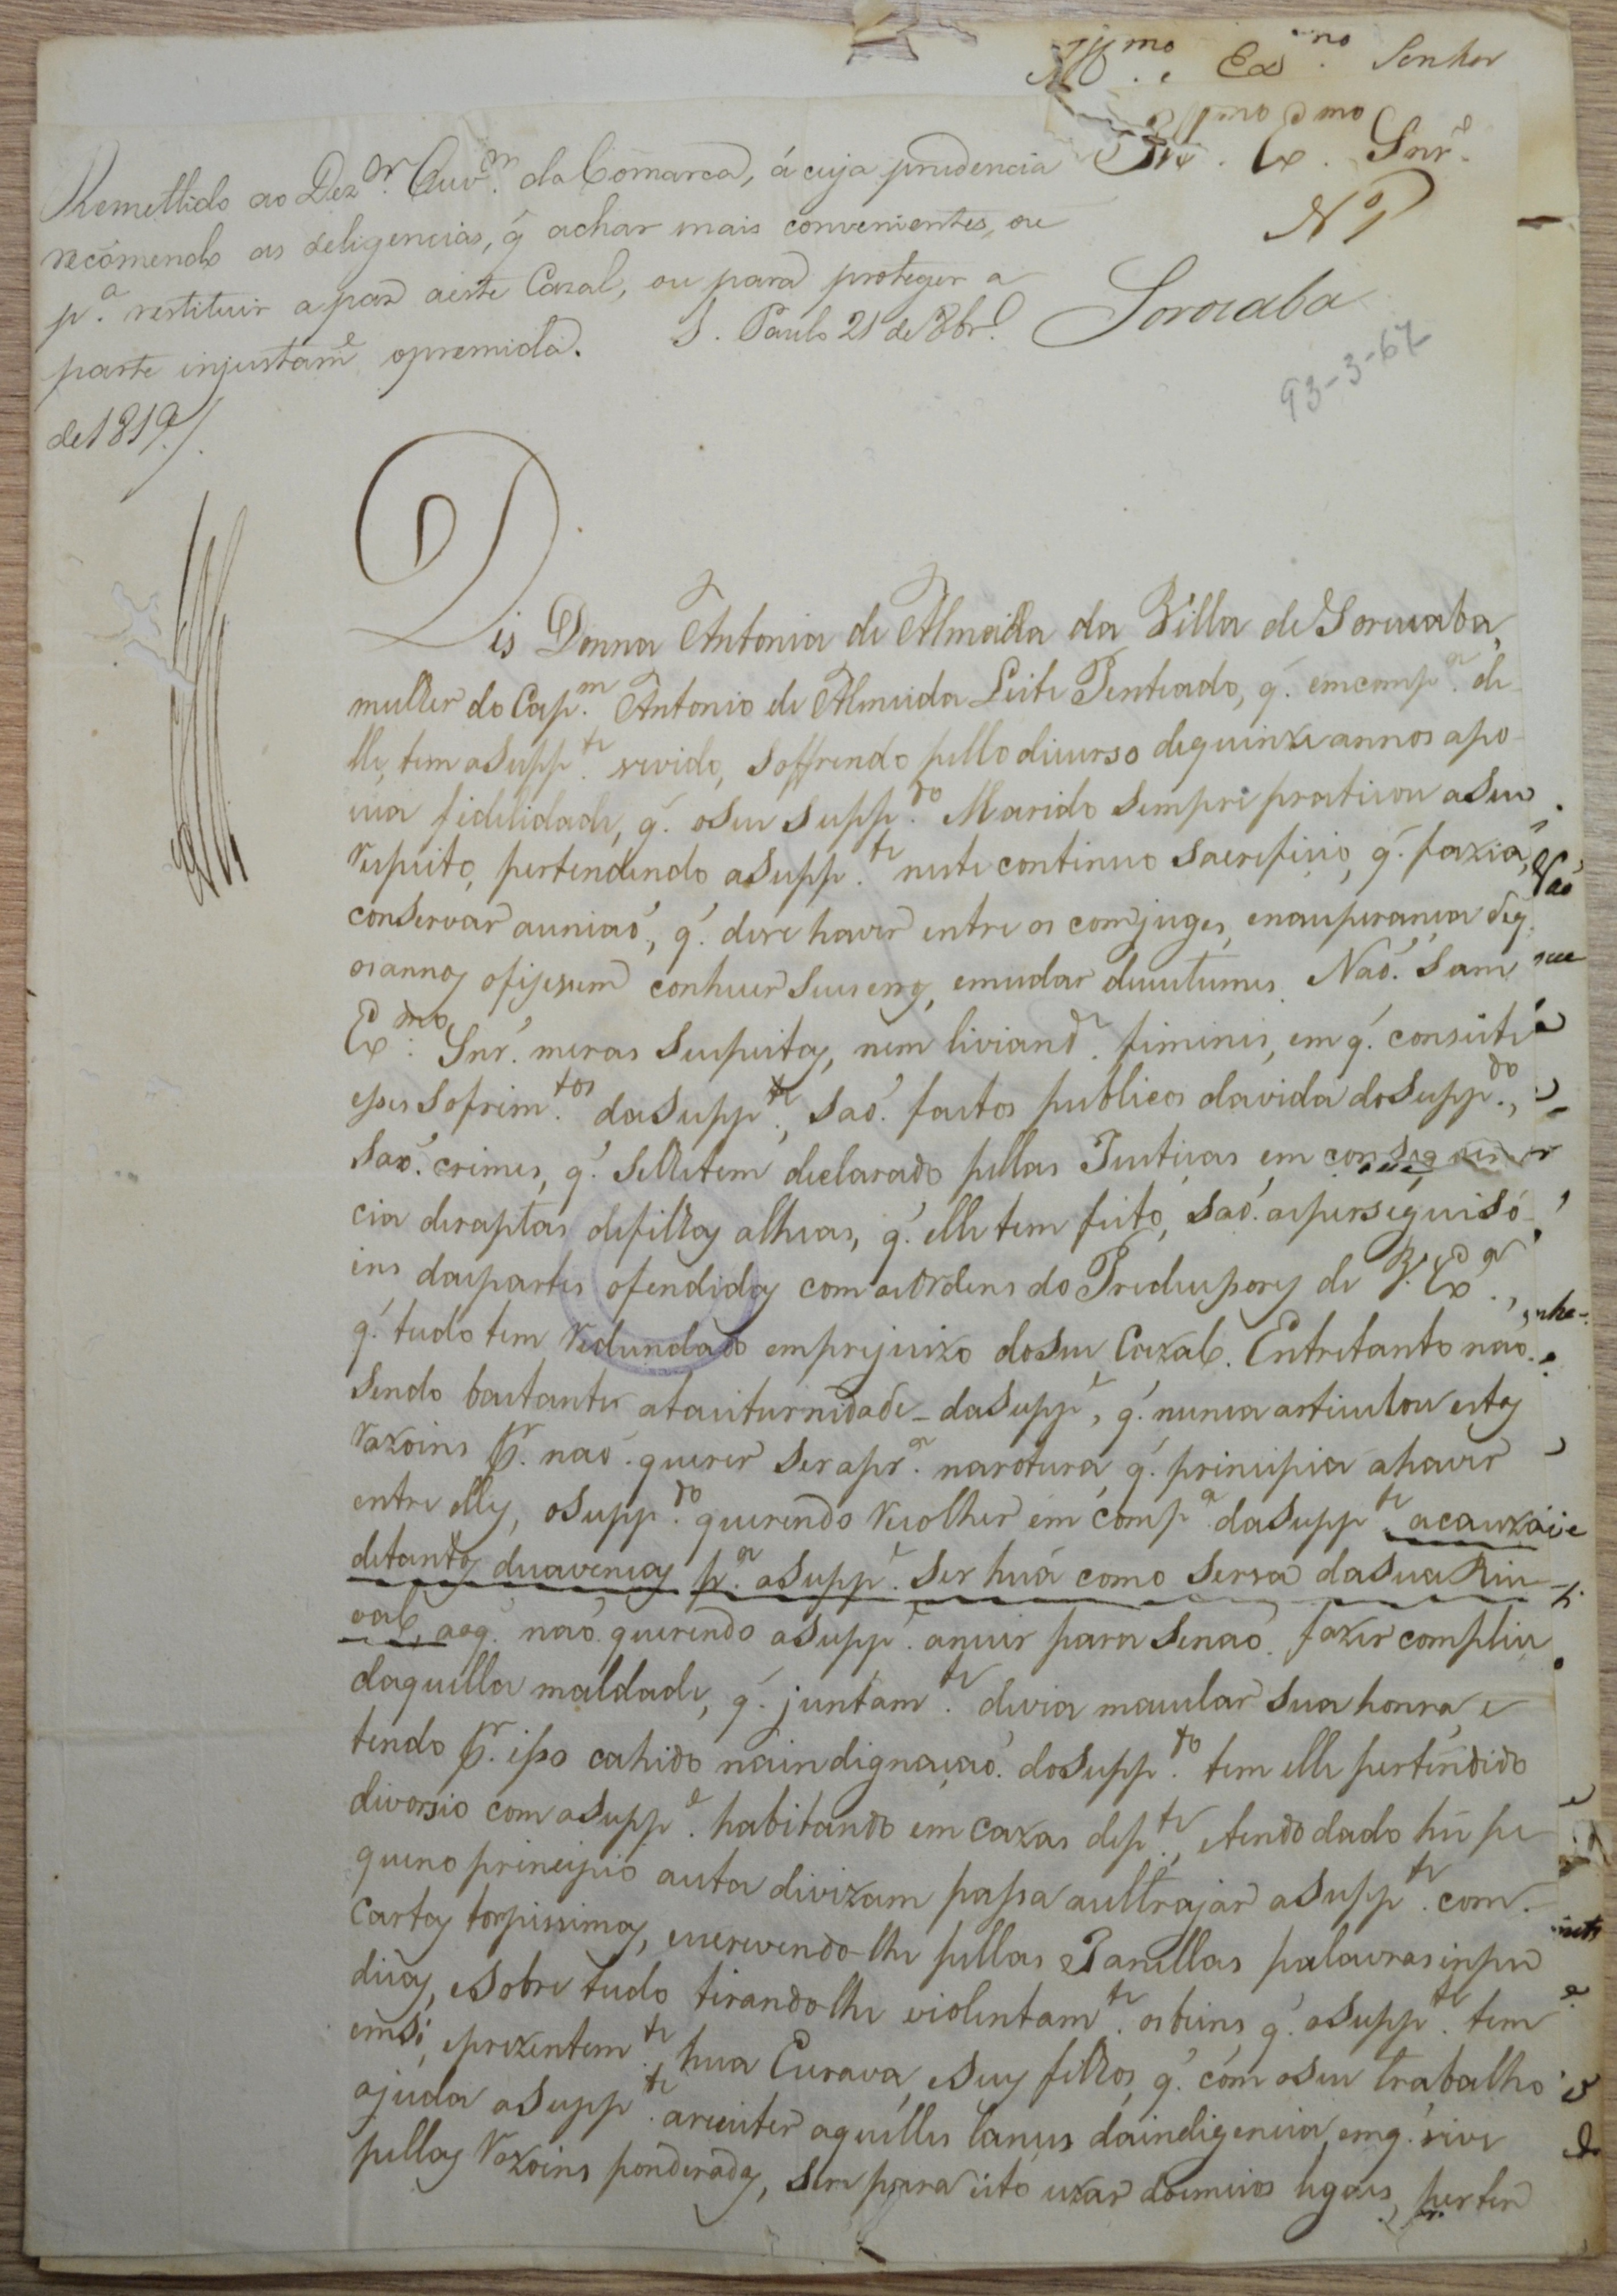 Ill.mo e Ex.mo Senhor
Ill.mo Ex.mo Snr.e
Nº 1
Sorocaba
93-3-67
Remettido ao Dez.or Ouv.or da Comarca, á cuja prudencia
recõmendo as deligencias, q̃ achar mais convenientes, ou
p.a restituir a paz aeste Cazal, ou para proteger a
parte injustam.e opremida. S. Paulo 21 de 8br.o
de 1819
Dis Donna Antonia de Almeida da Villa de Sorocaba,
mulher do Cap.m Antonio de Almeida Leite Penteado, q. emcomp.a de
lle, tem aSupp.te vevido, soffrendo pello dicurso dequinze annos apo
uca fidelidade, q. oseu Supp.do Marido sempre praticou aSeu
respeito, pertendendo aSupp.te neste continuo sacreficio, q. fazia,
conservar auniaõ, q. deve haver entre os comjuges, enaesperança deq.
osannos ofizesem conhecer seus erros, emudar decustumes. Naõ. Sam
Ex.mo Snr. meras suspeitas, nem liviand.e fiminis, em q. consiste
esses sofrim.tos daSupp.te, saõ. factos publicos davida doSupp.do,
saõ. crimes, q. selhetem declarado pellas Justicas, em conseq uen
cia deraptos defilhas alheas, q. elle tem feito, saõ. asperseguisó
ens daspartes ofendidas com asOrdens do Predecesores de V. Ex.a,
q. tudo tem redundado emprejuizo doseu Cazal. Entretanto naõ.
sendo bastante ataciturnidade daSupp.e, q. nunca articulou estas
razoins P.r naõ. querer ser apr.a narotura, q. principia ahaver
entre elles, oSupp.do querendo recolher em comp.a daSupp.te acauza
ditantas desavencas p.a aSupp.e ser huã como serva dasua Riu
val, aoq. naõ. querendo aSupp.e anuir para senaõ. fazer complice
daquella maldade, q. juntam.te devia macular sua honra, e
tendo P.r isso cahido naindignaçaõ. doSupp.do tem elle pertendido
divorsio com aSupp.e habitando em cazas dep.te, etendo dado hũ pe
queno principio aesta divizam passa aultrajar aSupp.te com
Cartas torpissimas, escrevendo-lhe pellas Janellas palavras inpu
dicas, eSobre tudo tirandolhe violentam.te osbeins q. aSupp.te tem
emsi, eprezentem.te, hua Escrava, eseus filhos, q. com oseu trabalho
ajuda aSupp.te aresister aquelles lances daindigencia, emq. vive
pellas razoins ponderadas, sem para isto uzar dosmeios legaes, perten